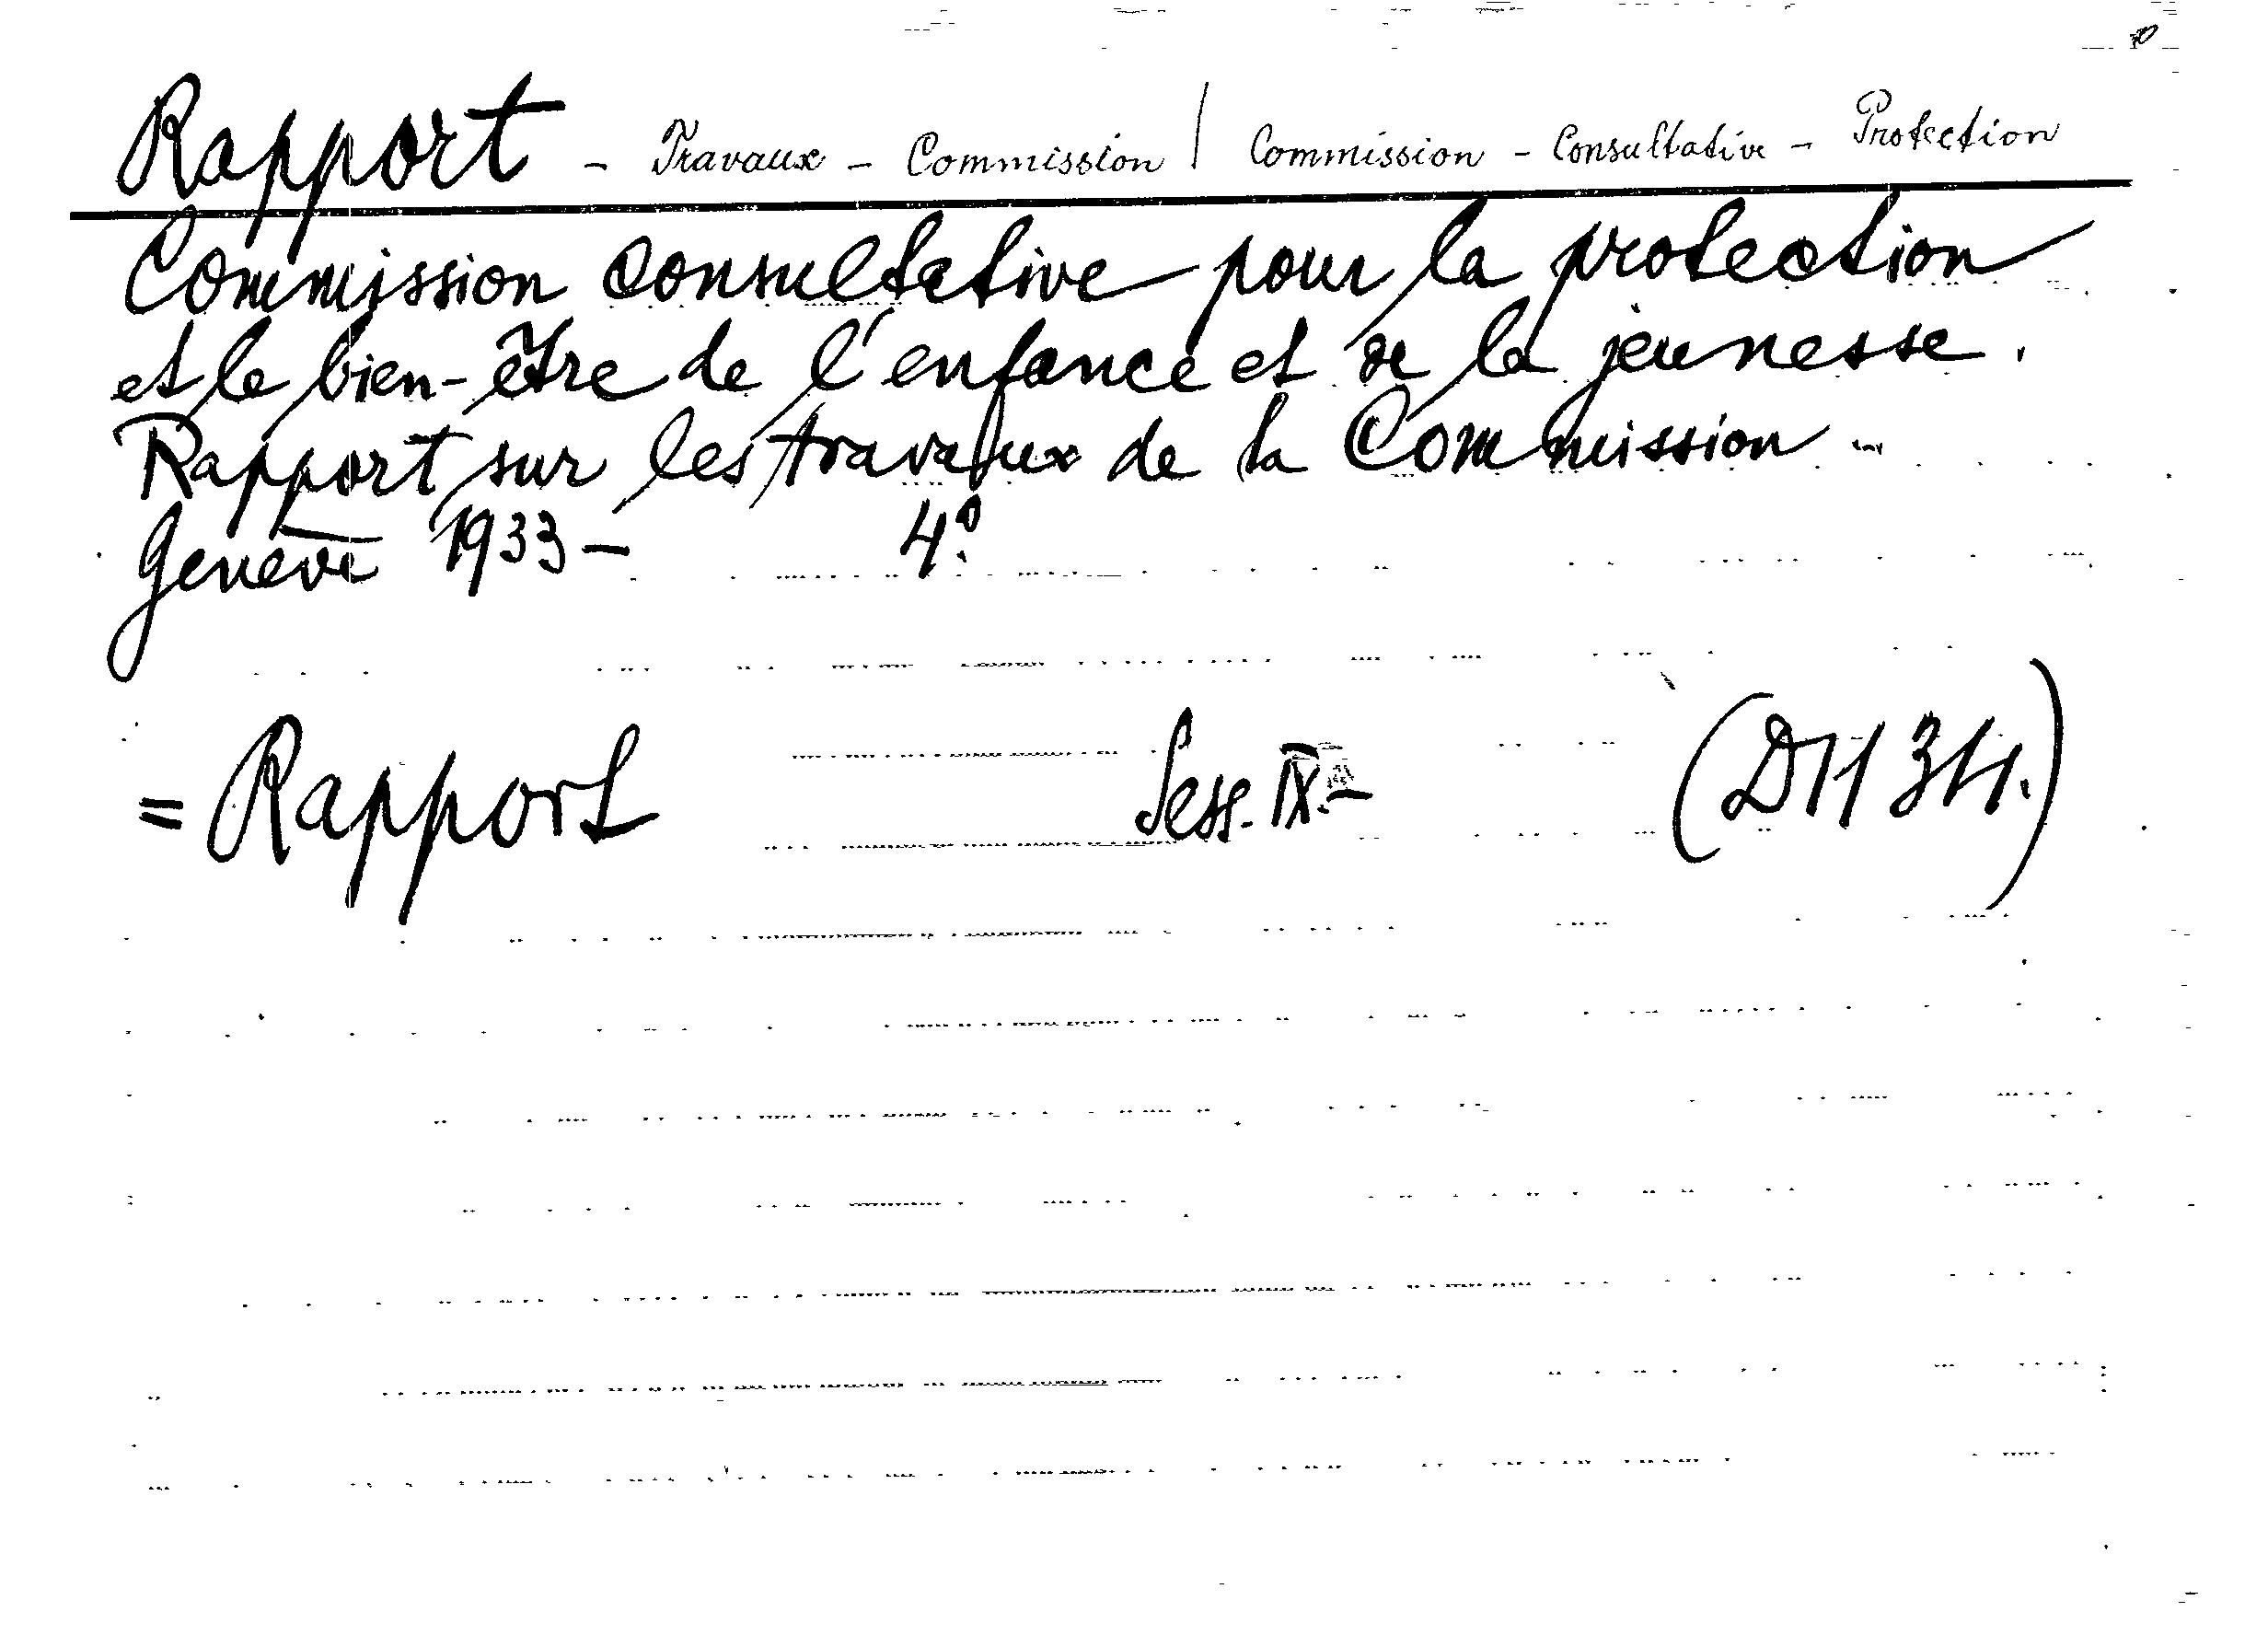 Rapport - Travaux - Commission | Commission - Consultative - Protection
Commission consultative pour la protection
et le bien-être de l'enfance et de la jeunesse.
Rapport sur les travaux de la Commission -
Genève 1933 - 4º
= Rapport Sess. IX. -